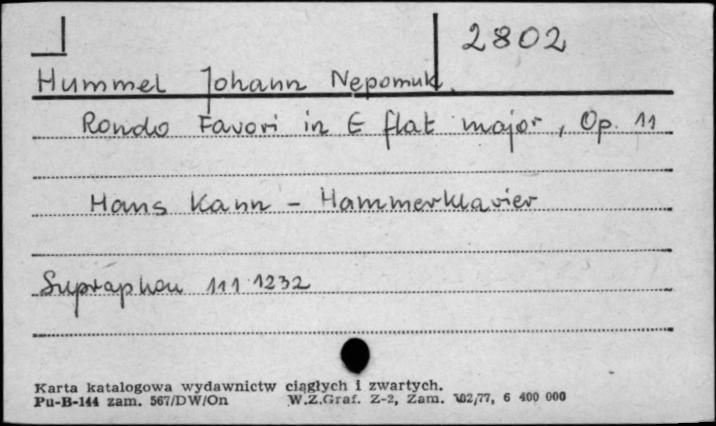 2802
Hummel Johann Nepomuk.
Rondo Favori in E flat major, Op. 11
Hans Kann - Hammerklavier
Supraphon 111 1232
Karta katalogowa wydawnictw ciągłych i zwartych.
Pu-B-144 zam. 567/DW/On W.Z.Graf. Z-2, Zam. 102/77, 6 400 000